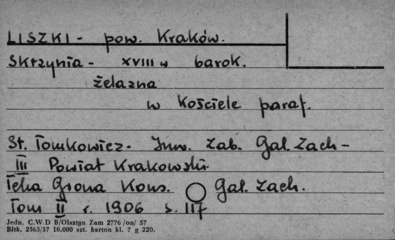 LISZKI - pow. Kraków.
Skrzynia - XVIII w barok.
żelazna
w Kościele paraf.
St. Tomkowicz - Inw. Zab. Gal. Zach -
III Powiat Krakowski
Teka Grona Kons. Gal. Zach.
Tom II r. 1906 s. 117
Jedn. C.W.D B/Olsztyn Zam 2776 /on/ 57
Bltk. 2563/57 10.000 szt. karton kl. 7 g 220.